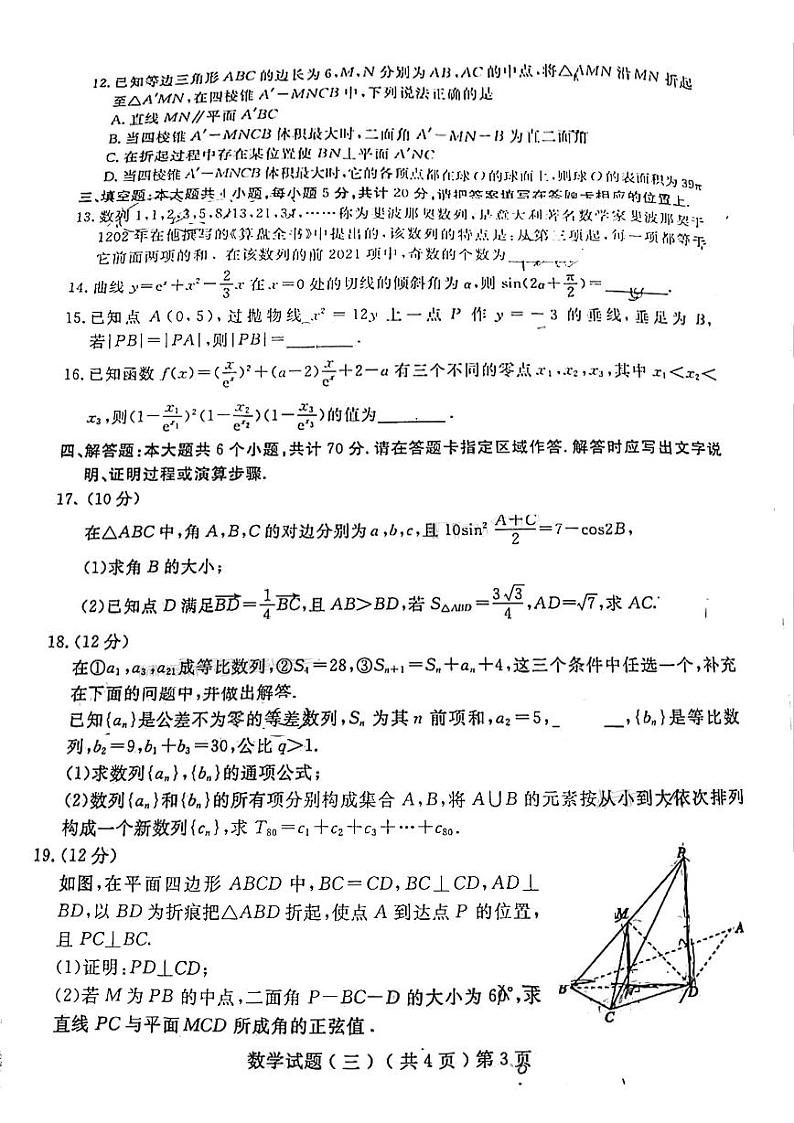 12. 已知等边三角形 ABC 的边长为 6,M,N 分别为 AB,AC 的中点,将△AMN 沿 MN 折起
至△A′MN,在四棱锥 A′-MNCB 中,下列说法正确的是
A. 直线 MN∥平面 A′BC
B. 当四棱锥 A′-MNCB 体积最大时,二面角 A′-MN-B 为直二面角
C. 在折起过程中存在某位置使 BN⊥平面 A′NC
D. 当四棱锥 A′-MNCB 体积最大时,它的各顶点都在球 O 的球面上,则球 O 的表面积为 39π
三、填空题:本大题共 4 小题,每小题 5 分,共计 20 分,请把答案填写在答题卡相应的位置上.
13. 数列 1,1,2,3,5,8,13,21,34,……称为斐波那契数列,是意大利著名数学家斐波那契于
1202 年在他撰写的《算盘全书》中提出的,该数列的特点是:从第三项起,每一项都等于
它前面两项的和. 在该数列的前 2021 项中,奇数的个数为
14. 曲线 y=eˣ+x²-2/3x 在 x=0 处的切线的倾斜角为 α,则 sin(2α+π/2)=______.
15. 已知点 A(0,5),过抛物线 x²=12y 上一点 P 作 y=-3 的垂线,垂足为 B,
若|PB|=|PA|,则|PB|=______.
16. 已知函数 f(x)=(x/eˣ)²+(a-2)x/eˣ+2-a 有三个不同的零点 x₁,x₂,x₃,其中 x₁<x₂<
x₃,则(1-x₁/e^x₁)²(1-x₂/e^x₂)(1-x₃/e^x₃)的值为______.
四、解答题:本大题共 6 个小题,共计 70 分. 请在答题卡指定区域作答. 解答时应写出文字说
明、证明过程或演算步骤.
17. (10 分)
在△ABC 中,角 A,B,C 的对边分别为 a,b,c,且 10sin² (A+C)/2=7-cos2B,
(1)求角 B 的大小;
(2)已知点 D 满足BD→=1/4BC→,且 AB>BD,若 S△ABD=3√3/4,AD=√7,求 AC.
18. (12 分)
在①a₁,a₃,a₂₁成等比数列,②S₄=28,③Sₙ₊₁=Sₙ+aₙ+4,这三个条件中任选一个,补充
在下面的问题中,并做出解答.
已知{aₙ}是公差不为零的等差数列,Sₙ 为其 n 前项和,a₂=5,_ __,{bₙ}是等比数
列,b₂=9,b₁+b₃=30,公比 q>1.
(1)求数列{aₙ},{bₙ}的通项公式;
(2)数列{aₙ}和{bₙ}的所有项分别构成集合 A,B,将 A∪B 的元素按从小到大依次排列
构成一个新数列{cₙ},求 T₈₀=c₁+c₂+c₃+…+c₈₀.
19. (12 分)
如图,在平面四边形 ABCD 中,BC=CD,BC⊥CD,AD⊥
BD,以 BD 为折痕把△ABD 折起,使点 A 到达点 P 的位置,
且 PC⊥BC.
(1)证明:PD⊥CD;
(2)若 M 为 PB 的中点,二面角 P-BC-D 的大小为 60°,求
直线 PC 与平面 MCD 所成角的正弦值.
P
M
A
B
D
C
数学试题(三)(共 4 页)第 3 页